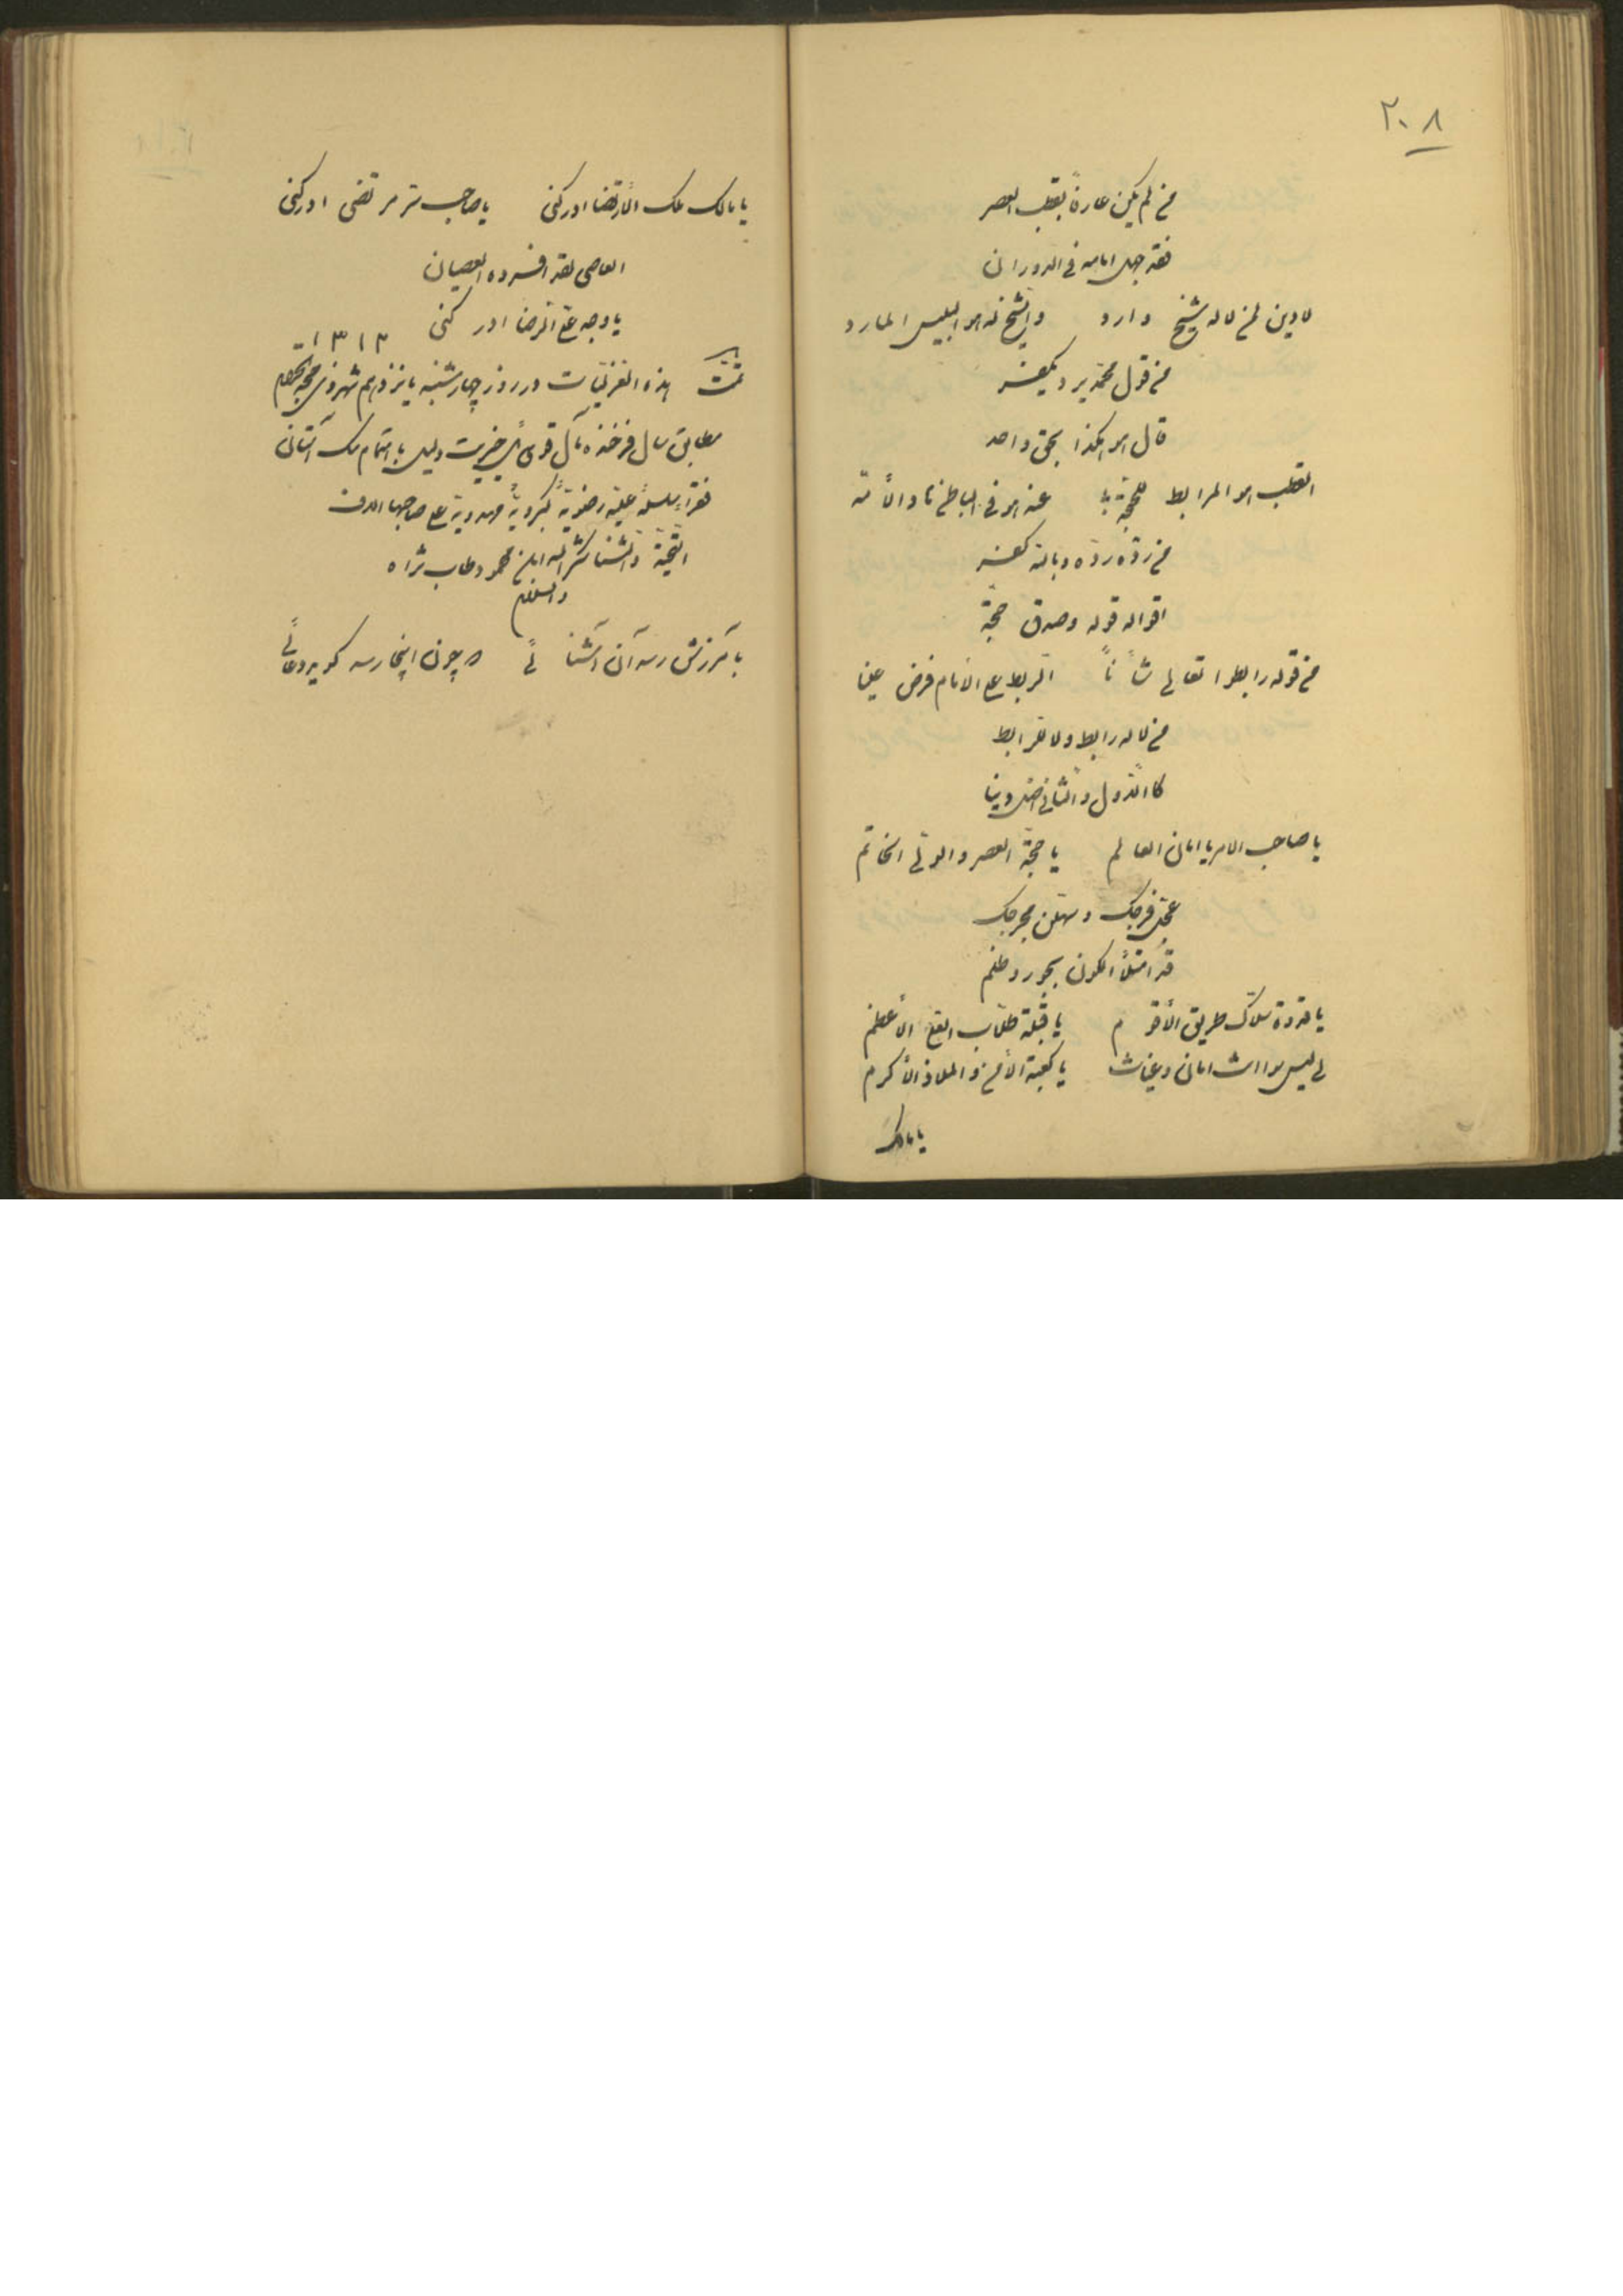 ۲۰۸
من لم یکن عارفاً بقطب العصر
فقد جهل امامه فی الدوران
لا دین لمن لا له شیخ وارد والشیخ له هو ابلیس المارد
من قول محمد یرد یکفر
قال هو هکذا بحق واحد
القطب هو المرابط للحجة عنه هو فی الباطن نا والأمة
من رده رده وبالله کفر
اقواله قوله وصدق حجة
من قوله رابطوا تعالی شأناً الربط علی الانام فرض عینا
من لا له رابط ولا
والثانی اضل دینا
یا صاحب الامر یا امان العالم یا حجة العصر والولی الخاتم
عجل فرجک وسهلن مخرجک
قد امتلأ الکون بجور وظلم
یا قدوة سلاک طریق الأقوم یا قبلة طلاب الأعظم
لی لیس سواک امان وغیاث یا کعبة الأمن والملاذ الأکرم
یا مالک
یا مالک ملک الأرتضا ادرکنی یا صاحب سر مرتضی ادرکنی
العاصی لقد افسرده العصیان
یا وجه علی الرضا ادرکنی
۱۳۱۳
تمت هذه الغزلیات در روز چهارشنبه پانزدهم شهر ذی حجة الحرام
مطابق سال فرخنده مآل قوی ئیل خیریت دلیل باهتمام ملک آستان
فقراء سلسلهٔ علیه رضویهٔ کبرویهٔ مهدویة علی صاحبها الاف
التحیة والثنا ابن محمود طاب ثراه
والسلام
بآمرزش رسد آن آشنائی که چون اینجا رسد گوید دعائی